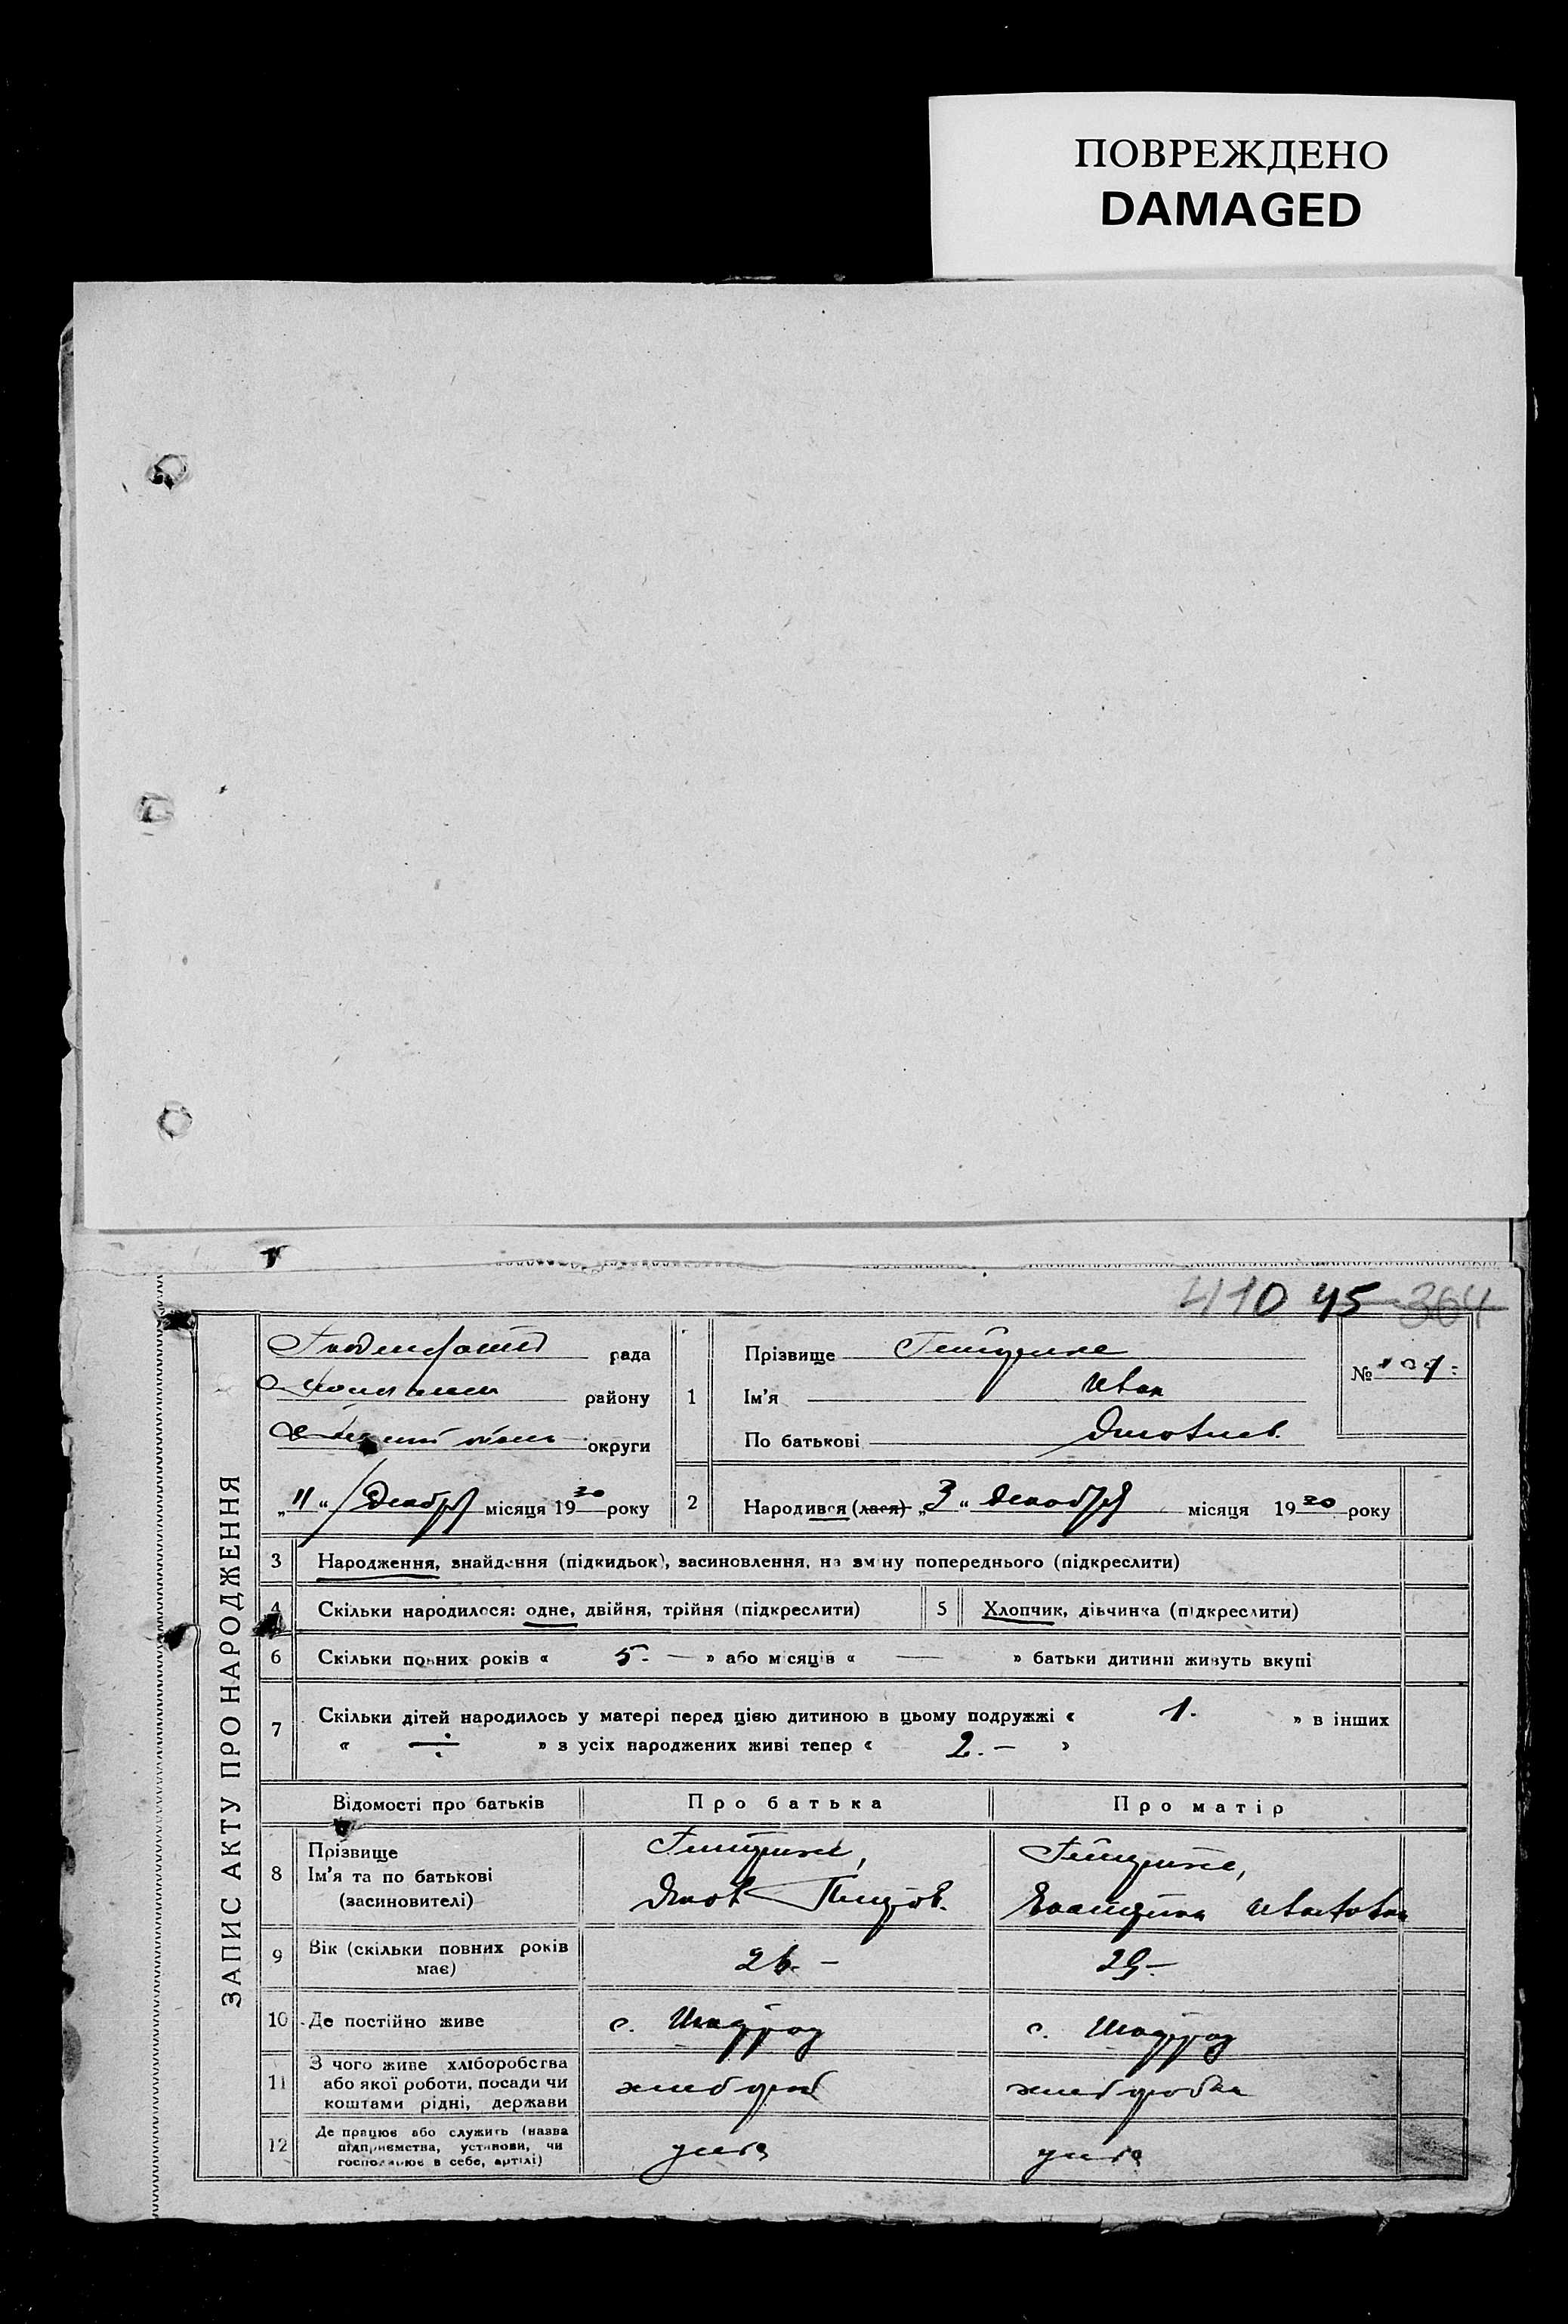 ПОВРЕЖДЕНО
DAMAGED
410 45 364
ЗАПИС АКТУ ПРО НАРОДЖЕННЯ
рада
району
округи
„11“ декабря місяця 1930 року
1
Прізвище
Ім'я Иван
По батькові Яковлев.
№
2
Народився (лася) „3“ декабря місяця 1930 року
3 Народження, знайдення (підкидьок), засиновлення, на зміну попереднього (підкреслити)
4 Скільки народилося: одне, двійня, трійня (підкреслити)
5 Хлопчик, дівчинка (підкреслити)
6 Скільки повних років « 5. — » або місяців « — » батьки дитини живуть вкупі
7 Скільки дітей народилось у матері перед цією дитиною в цьому подружжі « 1. » в інших
« ÷ » з усіх народжених живі тепер « 2. — »
Відомості про батьків Про батька Про матір
8
Прізвище
Ім'я та по батькові
(засиновителі)
Яков Петров.
Екатерина Ивановна
9 Вік (скільки повних років має) 26. — 25 —
10 Де постійно живе с. с.
11 З чого живе хліборобства
або якої роботи, посади чи
коштами рідні, держави
хлебороб
хлеборобка
12 Де працює або служить (назва
підприємства, установи, чи
господарює в себе, артілі)